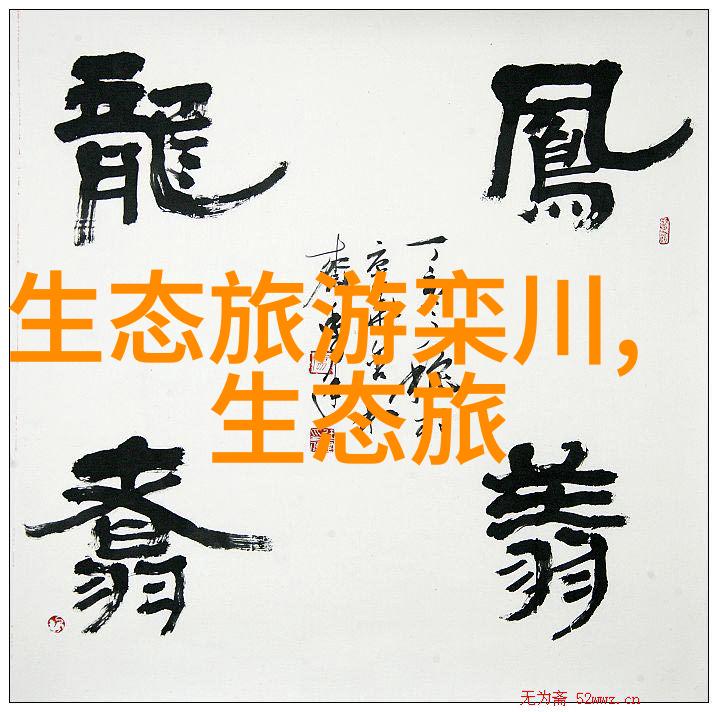 鳳翔
龍翥
生态旅游栾川,
生态旅
无为斋 52wwz.cn